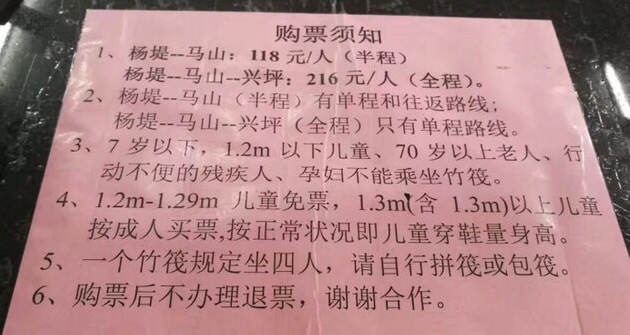 购票须知
1、杨堤--马山：118 元/人（半程）
杨堤--马山--兴坪：216 元/人（全程）。
2、杨堤--马山（半程）有单程和往返路线；
杨堤--马山--兴坪（全程）只有单程路线。
3、7 岁以下，1.2m 以下儿童、70 岁以上老人、行
动不便的残疾人、孕妇不能乘坐竹筏。
4、1.2m-1.29m 儿童免票，1.3m(含 1.3m)以上儿童
按成人买票,按正常状况即儿童穿鞋量身高。
5、一个竹筏规定坐四人，请自行拼筏或包筏。
6、购票后不办理退票，谢谢合作。